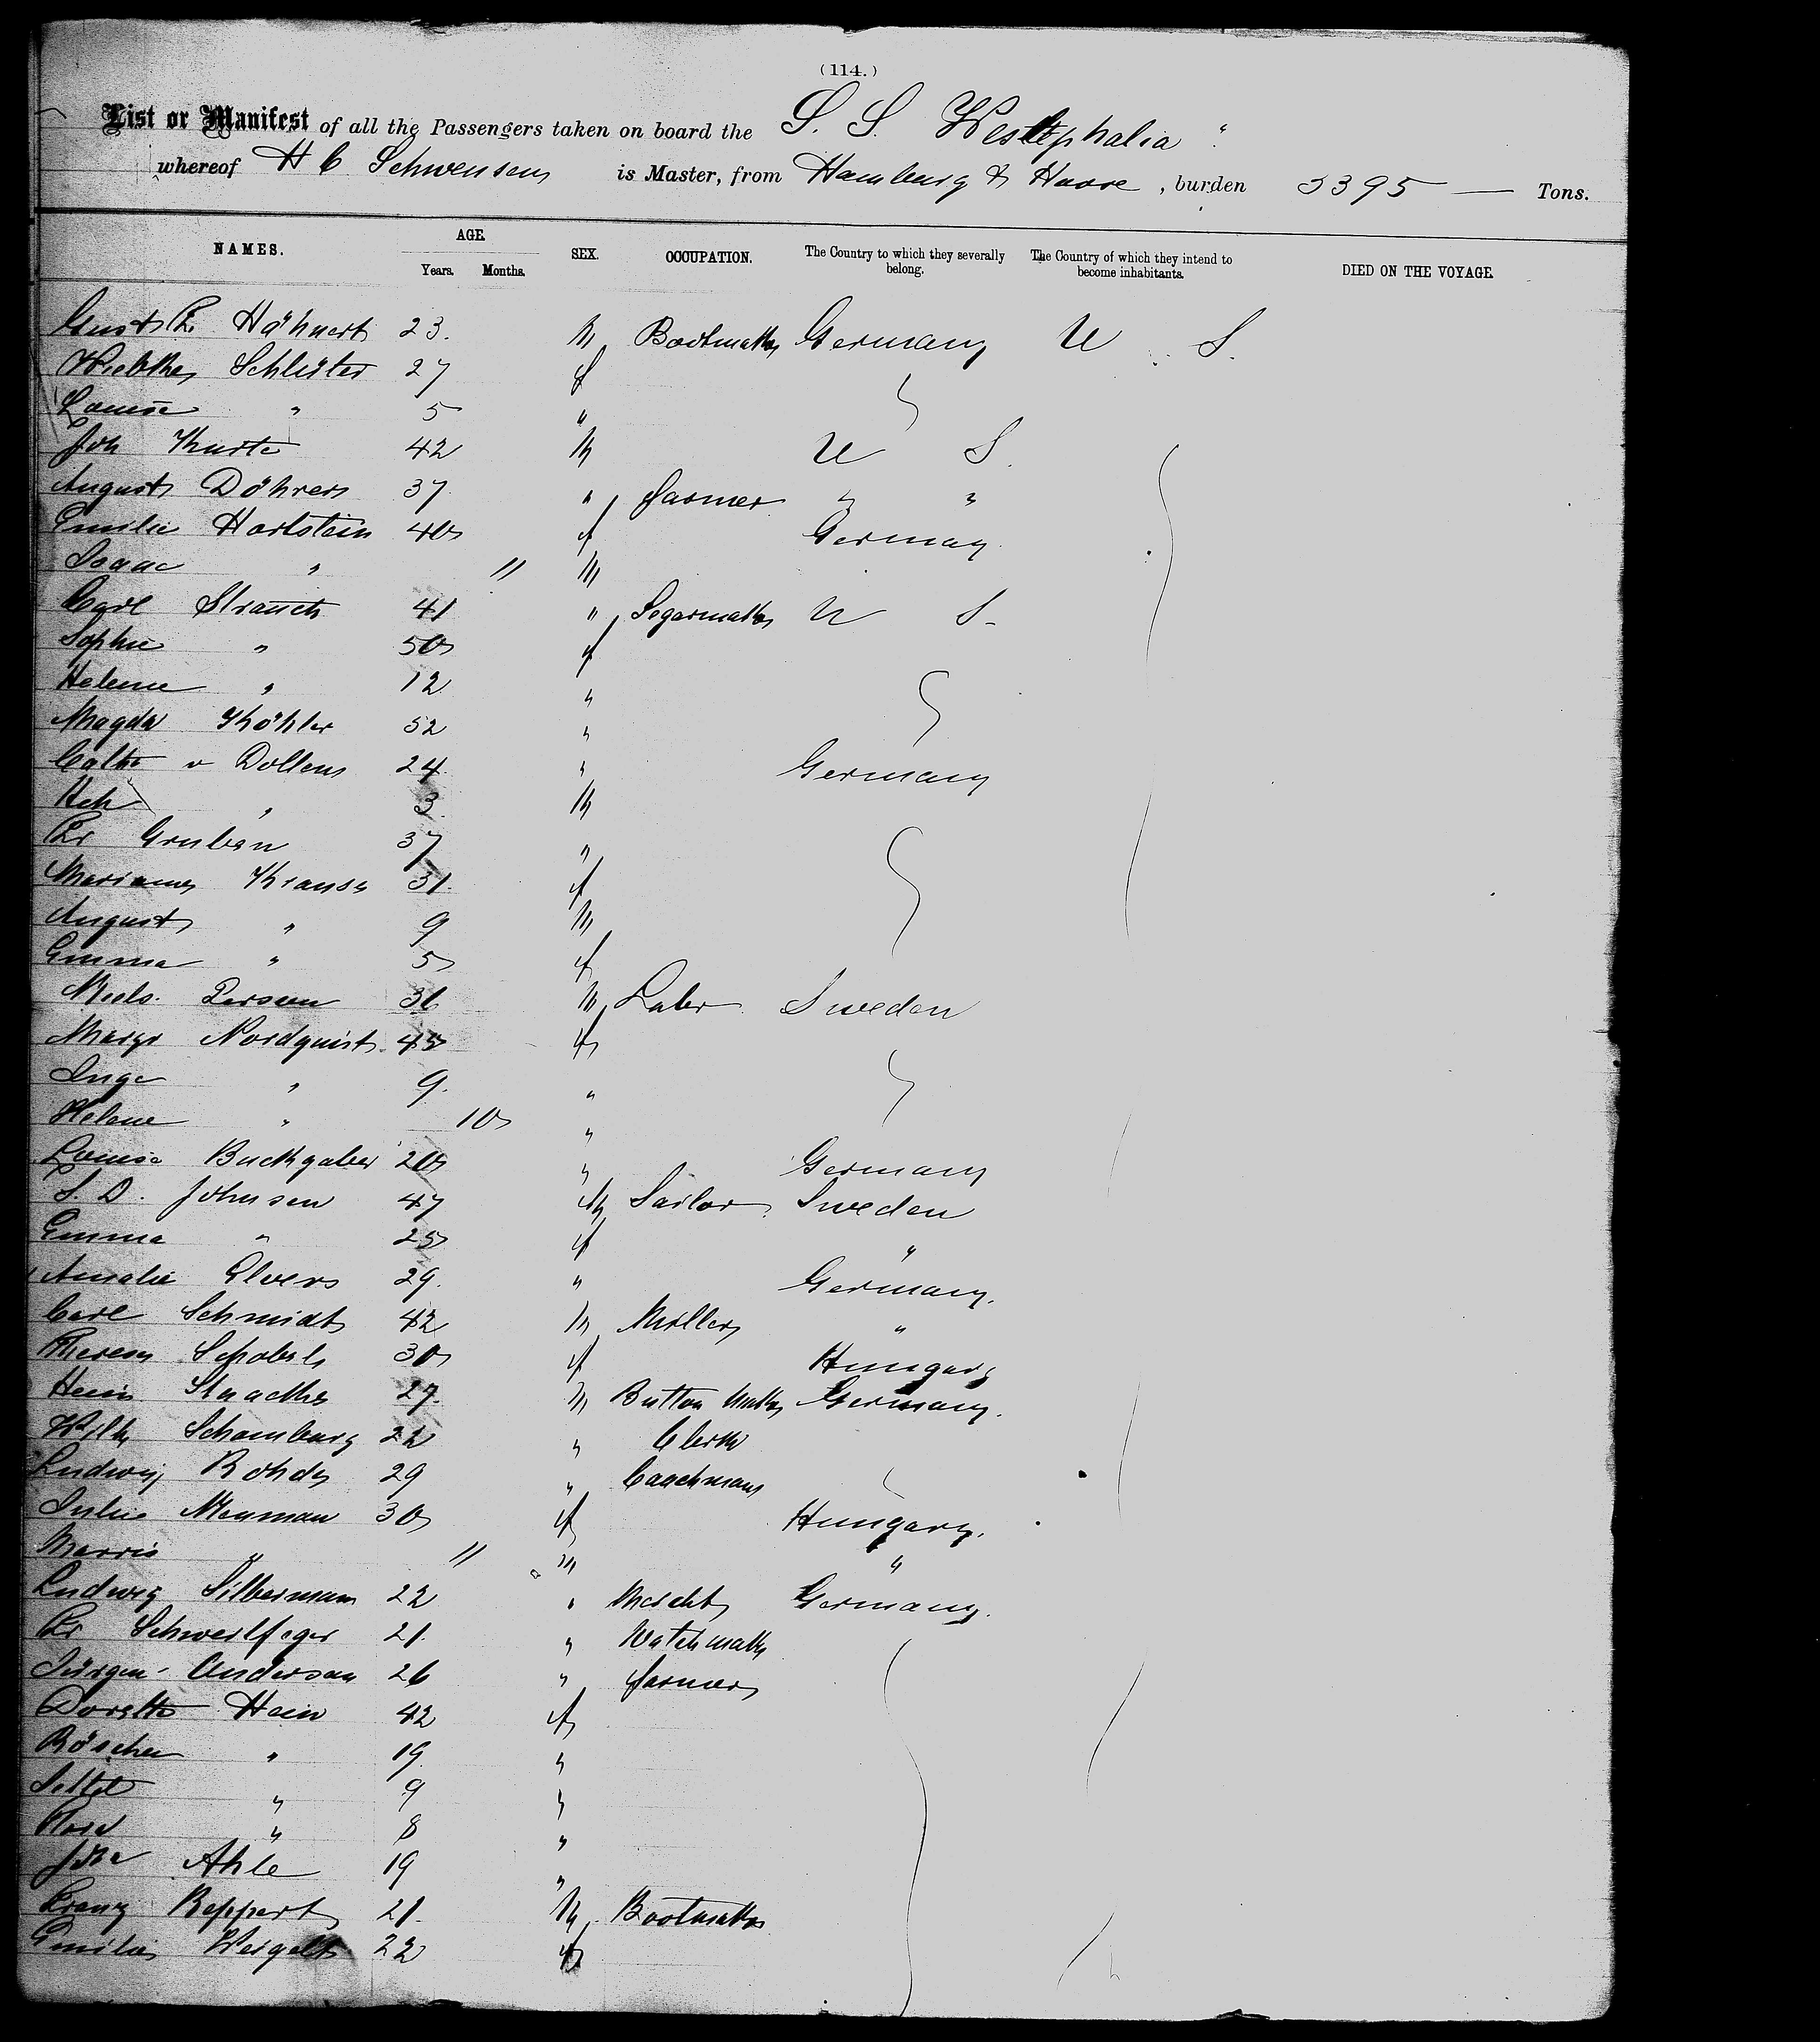 (114.)
List or Manifest of all the Passengers taken on board the S. S. Westphalia "
whereof H C Schwensen is Master, from Hamburg & Havre, burden 3395 — Tons.
NAMES. AGE. SEX. OCCUPATION. The Country to which they severally belong. The Country of which they intend to become inhabitants. DIED ON THE VOYAGE.
Years. Months.
Hähnert 23. M Germany U S.
Schlüter 27 f
Louise " 5 "
Joh 42 M U S.
August Döhren 37 " farmer " "
Emilie Hartstein 40 f Germany
Isaac " 11 M
Carl Strauch 41 " Segarmak U S.
Sophie " 50 f
Helene " 12 "
Magda Köhler 52 "
v Dollen 24 " Germany
Hch " 3 M
Fr Gruben 37 "
Marianne Krause 31. f
August " 9 M
Emma " 5 f
Niels. Person M Labr Sweden
Nordquist 45 f
Inge " 9. "
Helene " 10 "
Louise Buckgaber 20 " Germany
S. D. Johnsen 47 M Sailor Sweden
Emma " 25 f "
Amalie Elvers 29. " Germany.
Carl Schmidt 42 M Miller "
Theresa 30 f Hungary
27. M Button Germany.
Wilh Schomburg 22 " Clerk
Ludwig Rohde 29 " Coachman
Julie Neuman 30 f Hungary.
Morris " 11 M "
Ludwig Silberman 22 " Mercht Germany.
Fr Schwertfeger 21. " Watchmak
Jürgen Anderson 26 " farmer
Dorette Hein 42 f
Röschen " 19. "
" 9 "
Rosa " 8 "
Ahle 19 "
Franz Reppert 21. M Bootmak
Emilie Weigelt 22 f